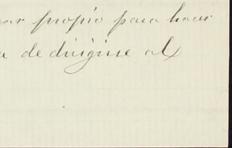 propio para hacer
de dirigirse al